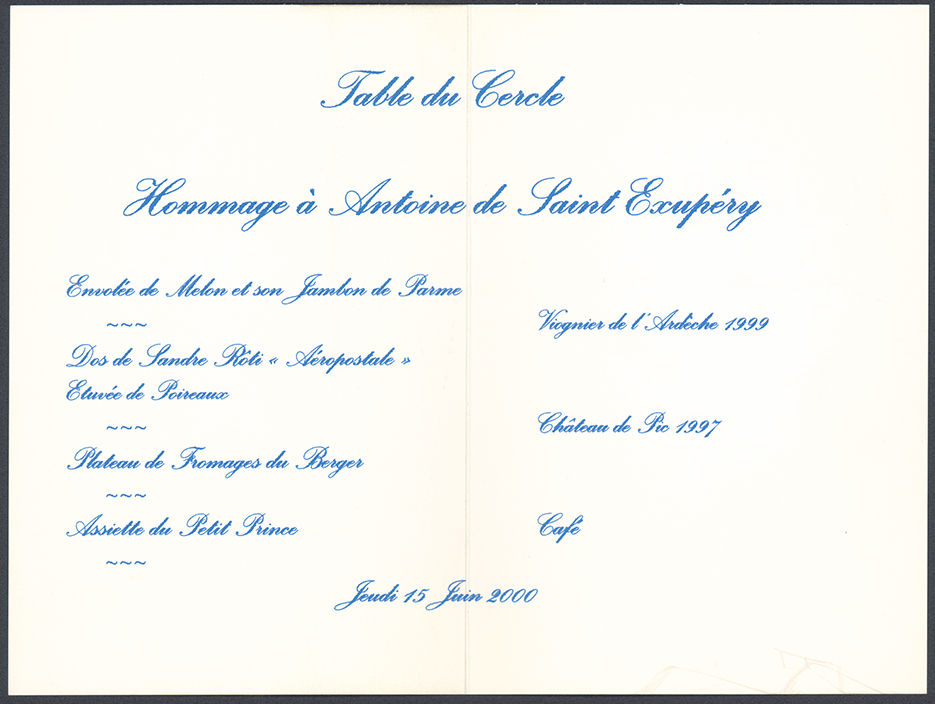 Table du Cercle
Hommage à Antoine de Saint Exupéry
Envolée de Melon et son Jambon de Parme
~~~
Viognier de l'Ardèche 1999
Dos de Sandre Rôti « Aéropostale »
Etuvée de Poireaux
~~~
Château de Pic 1997
Plateau de Fromages du Berger
~~~
Assiette du Petit Prince
Café
~~~
Jeudi 15 Juin 2000